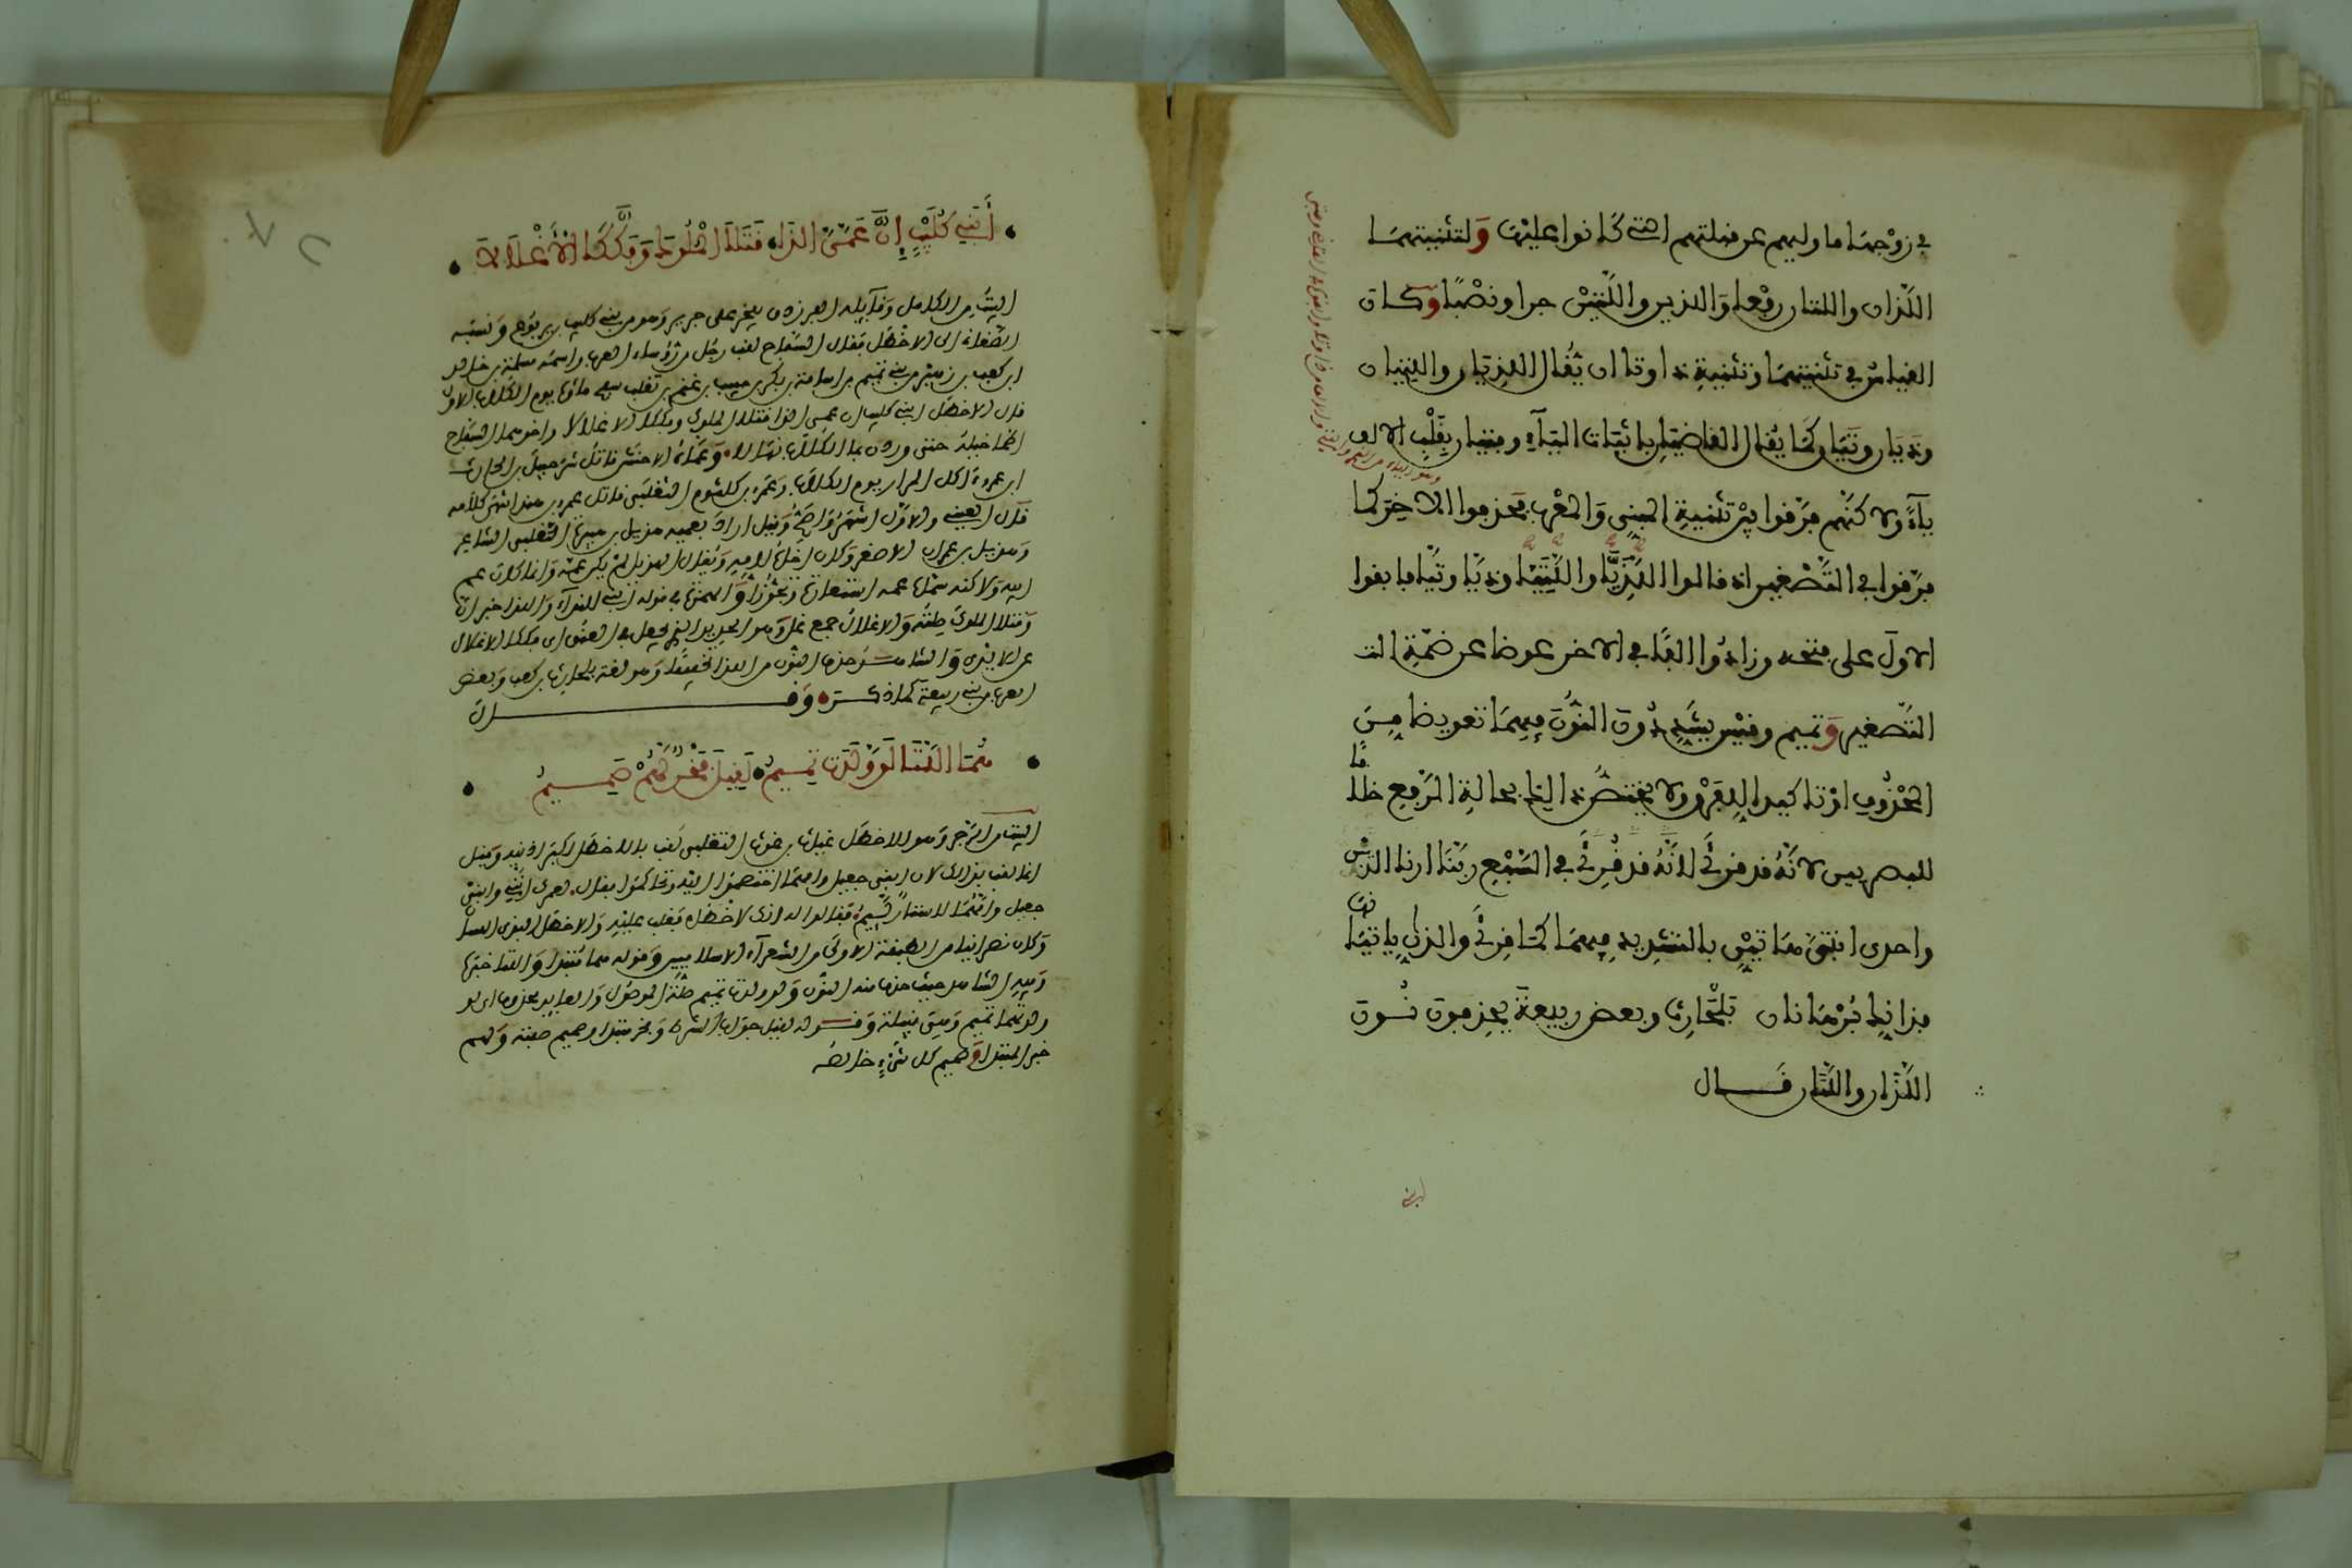 في زوجها ما وليهم عن قبلتهم التي كانوا عليها ولتثنيتهما
اللذان واللتان رفعا والذين واللتين جرا ونصبا وكان
القياس في تثنيتهما وتثنية ذا وتا ان يقال اللذيان واللتيان
وذيان وتيان كما يقال القاضيان باثبات الياء وفتيان بقلب الالف
ياء ولاكنهم فرقوا بين تثنية المبني والمعرب فحذفوا الاخر كما
فرقوا في التصغير اذ قالوا اللذيا واللتيا وذيا وتيا فابقوا
الاول على فتحه وزادوا الفا في الاخر عوضا عن ضمة
التصغير وتميم وقيس يشددون النون فيهما تعويضا من
المحذوف او تاكيدا للفرق ولا يختص ذلك بحالة الرفع خلافا
للبصريين لانه قد قرئ لانه قد قرئ في السبع ربنا ارنا الذين
واحدى ابنتي هاتين بالتشديد فيهما كما قرئ والذان ياتيانها
فذانك برهانان بلحارث وبعض ربيعة يحذفون نون
اللذان واللتان قال
أبني كليب إن عمي اللذا قتلا الملوك وفككا الأغلالا
البيت من الكامل وقايله الفرزدق يفخر على جرير وهو من بني كليب بن يربوع ونسبه
الصغاني الى الاخطل فقال السفاح لقب رجل من رؤساء العرب واسمه سلمة بن خالد
ابن كعب بن زهير من بني تميم بن اسامة بن بكر بن حبيب بن غنم بن تغلب ماءها يوم الكلاب الاول
قال الاخطل ابني كليب ان عمي اللذا قتلا الملوك وفككا الاغلالا واخوهما السفاح
ظمأ خيله حتى وردن جبا الكلاب نهالا وعماه الاحنش قاتل شرحبيل بن الحارث
ابن عمرو اكل المرار يوم الكلاب وعمرو بن كلثوم التغلبي قاتل عمرو بن هند انتهى كلامه
قال العيني والاول اشهر واصح وقيل اراد بعميه هذيل بن هبيرة التغلبي الشاعر
وهذيل بن عمران الاصغر وكان اخاه لامه ويقال الهذيل لم يكن عمه وانما كان عم
ابيه ولاكنه سماه عمه استعارة وتجوزا والهمزة في قوله ابني للنداء واللذا خبر ان
وقتلا الملوك صلته والاغلال جمع غل وهو الحديد الذي يجعل في العنق اي فككا الاغلال
عن الايدي والشاهد حذف النون من اللذا تخفيفا وهو لغة بلحارث بن كعب وبعض
العرب من بني ربيعة كما ذكره وقال
هما اللتا لو ولدت تميم لقيل فخر لهم صميم
البيت من الرجز وهو للاخطل غياث بن غوث التغلبي لقب بالاخطل لكبر اذنيه وقيل
انما لقب بذلك لان ابني جعيل وامهما اختصموا اليه وتحاكموا فقال لعمرك انني وابني
جعيل وامهما لاستار لئيم فقالوا له انك لاخطل فغلب عليه والاخطل البذي اللسان
وكان نصرانيا من الطبقة الاولى من الشعراء الاسلاميين وقوله هما مبتدا واللتا خبره
وفيه الشاهد حيث حذف منه النون ولو ولدت تميم صلة الموصول والعايد محذوف اي لو
ولدتهما تميم وهي قبيلة وقوله لقيل جواب الشرط وفخر مبتدا وصميم صفته ولهم
خبر المبتدا وصميم كل شيء خالصه